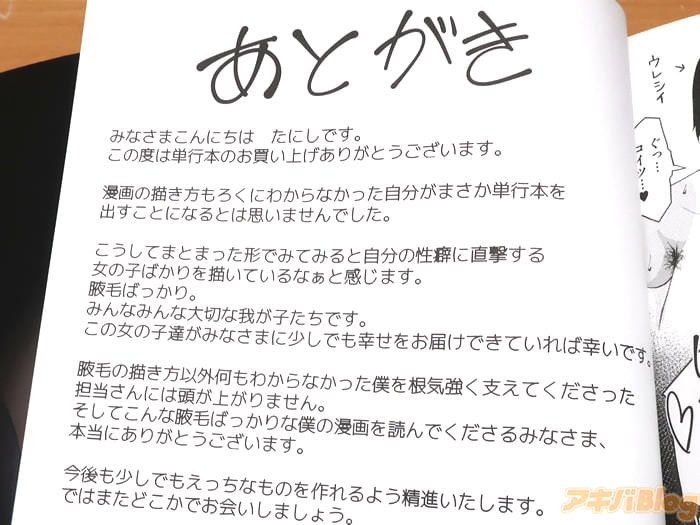 あとがき
みなさまこんにちは たにしです。
この度は単行本のお買い上げありがとうございます。
漫画の描き方もろくにわからなかった自分がまさか単行本を
出すことになるとは思いませんでした。
こうしてまとまった形でみてみると自分の性癖に直撃する
女の子ばかりを描いているなぁと感じます。
腋毛ばっかり。
みんなみんな大切な我が子たちです。
この女の子達がみなさまに少しでも幸せをお届けできていれば幸いです。
腋毛の描き方以外何もわからなかった僕を根気強く支えてくださった
担当さんには頭が上がりません。
そしてこんな腋毛ばっかりな僕の漫画を読んでくださるみなさま、
本当にありがとうございます。
今後も少しでもえっちなものを作れるよう精進いたします。
ではまたどこかでお会いしましょう。
ウレシイ
ぐっ…
コイツ…♥
アキバBlog